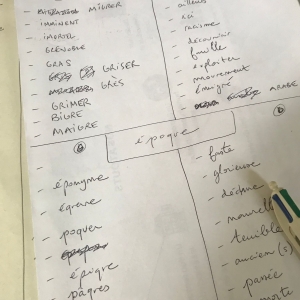 - MIGRER
- IMMINENT
- IMMORTEL
- GRENOBLE
- GRAS
- GRISER
- GRÈS
- GRIMER
- BIGRE
- MAIGRE
- ailleurs
- ici
- racisme
- découvrir
- famille
- exploiter
- mouvement
- émigré
- ARABE
époque
- éponyme
- égrène
- poquer
- épique
- pâques
- faste
- glorieuse
- déclin
- nouvelle
- terrible
- ancien(s)
- passée